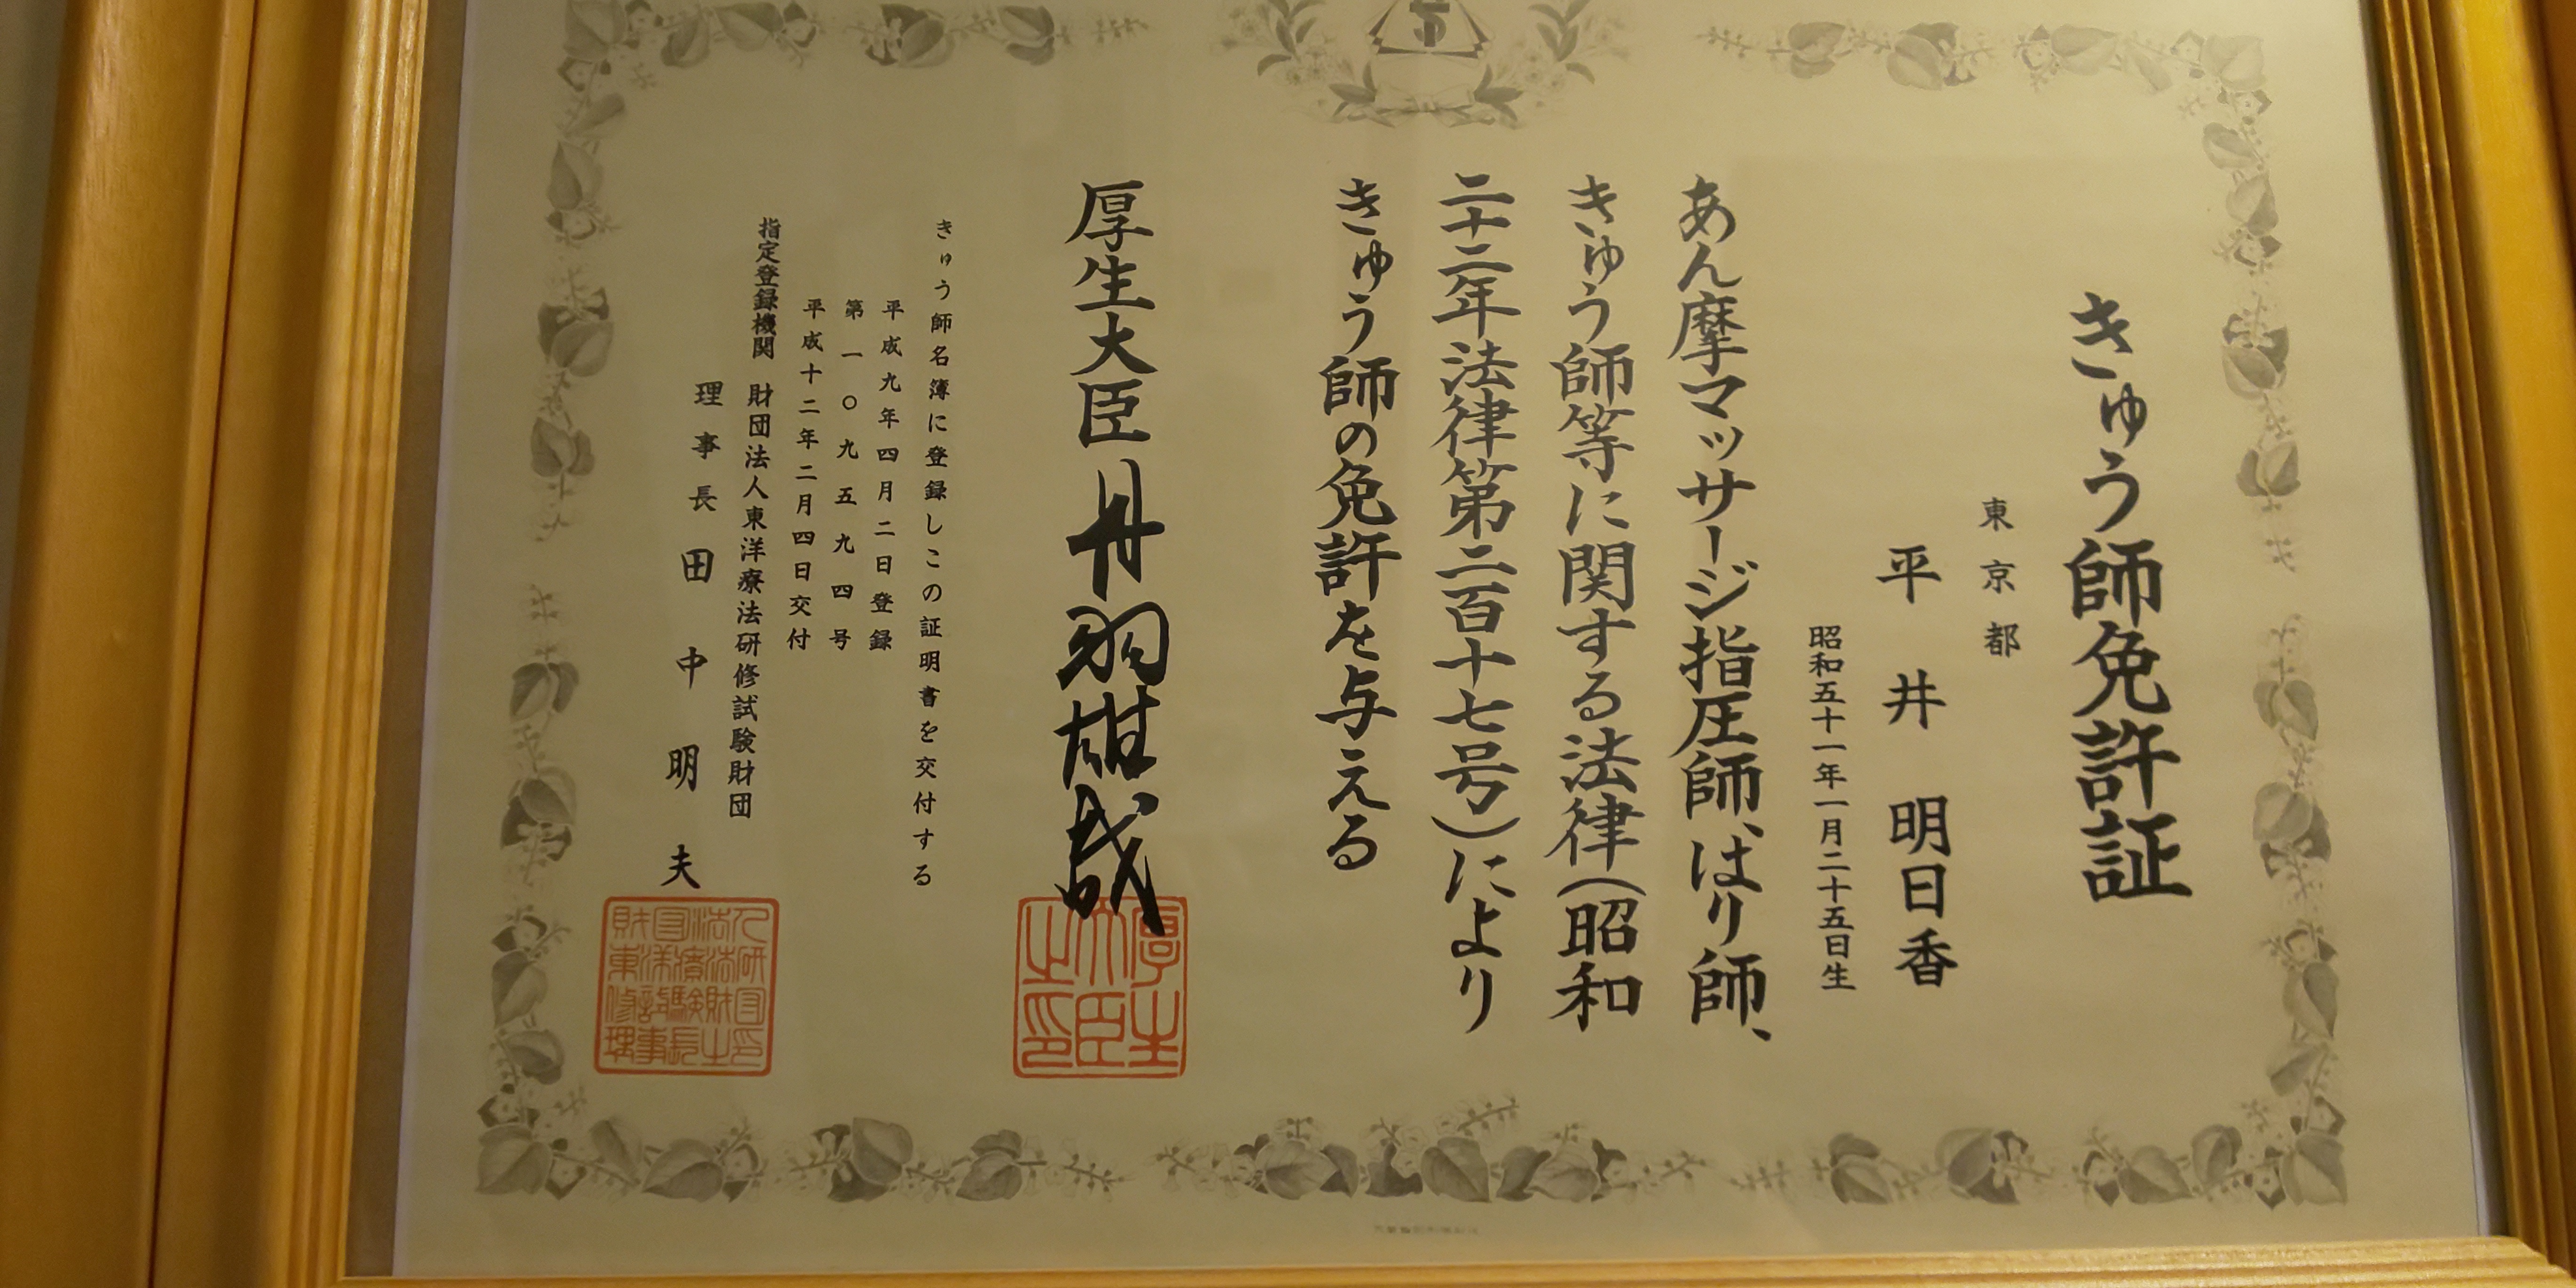 きゅう師免許証
東京都
平井明日香
昭和五十一年一月二十五日生
あん摩マッサージ指圧師、はり師、
きゅう師等に関する法律(昭和
二十二年法律第二百十七号)により
きゅう師の免許を与える
厚生大臣 丹羽雄哉
厚生大臣之印
きゅう師名簿に登録しこの証明書を交付する
平成九年四月二日登録
第一〇九五九四号
平成十二年二月四日交付
指定登録機関 財団法人東洋療法研修試験財団
理事長 田中明夫